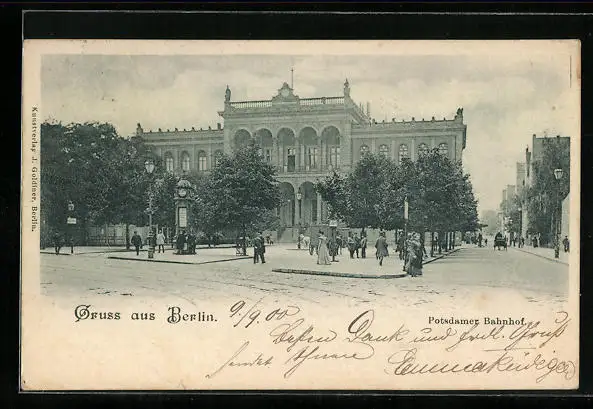 Kunstverlag J. Goldiner, Berlin.
Gruss aus Berlin.
Potsdamer Bahnhof.
9/9 00
Besten Dank und frdl. Gruß
sendet